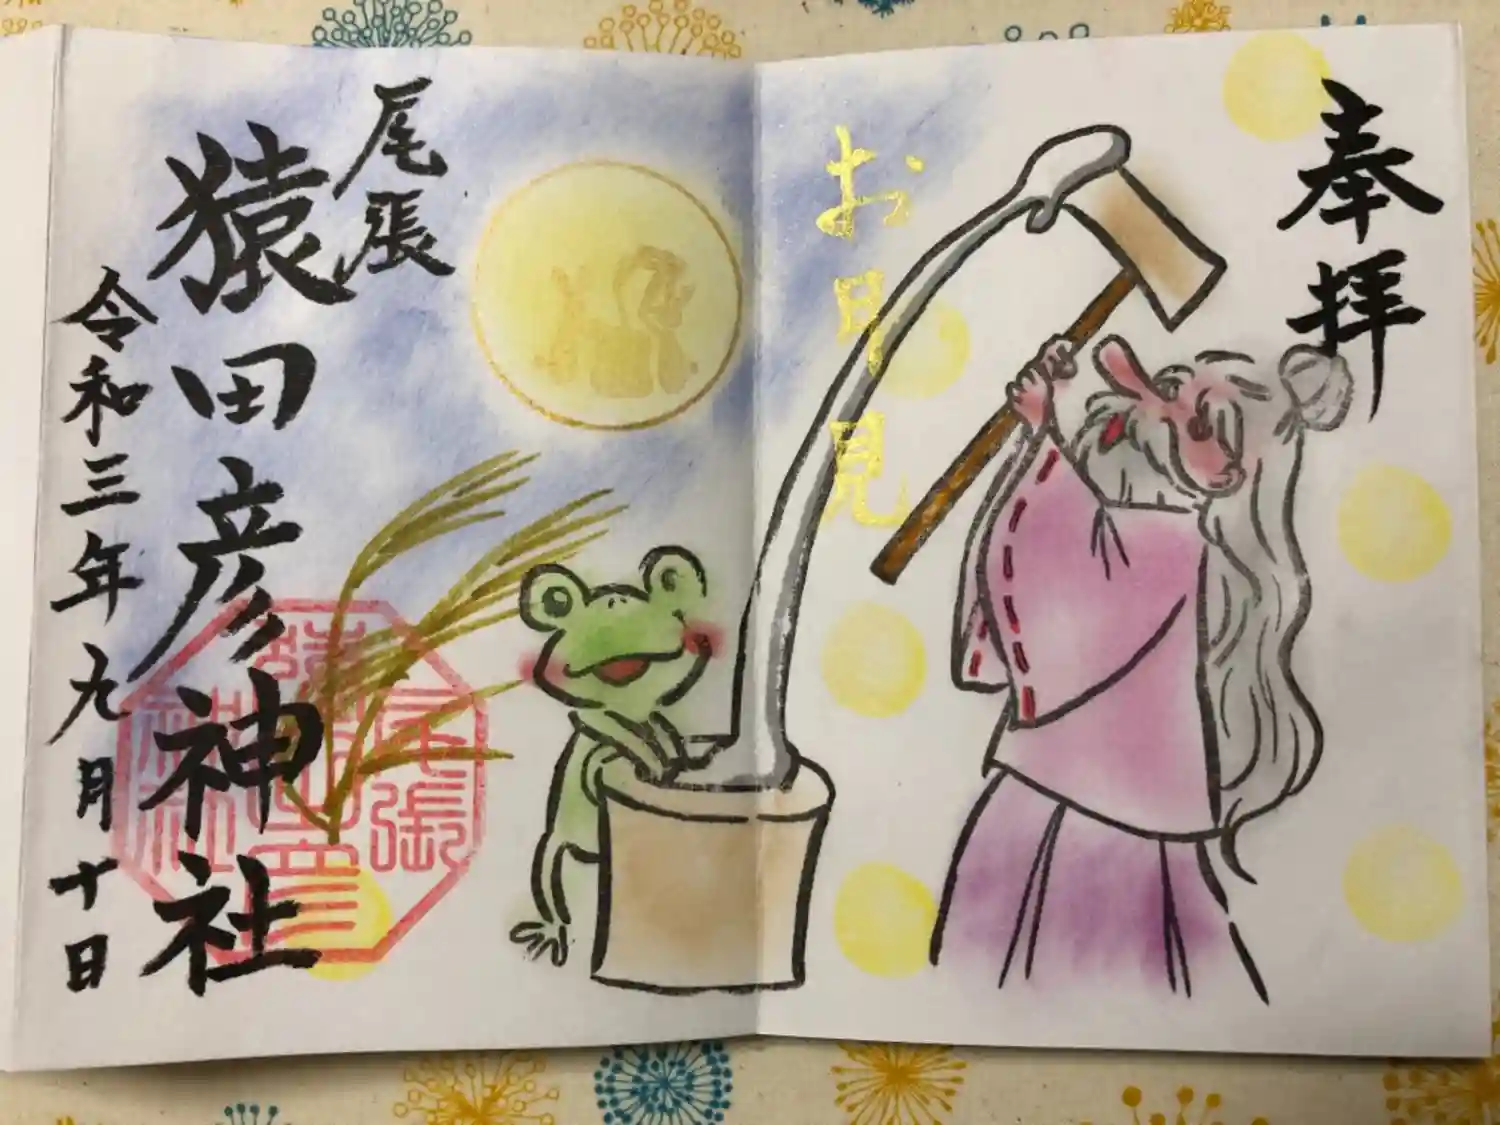 奉拝
お月見
尾張
猿田彦神社
令和三年九月十日
尾張
猿田彦
神社